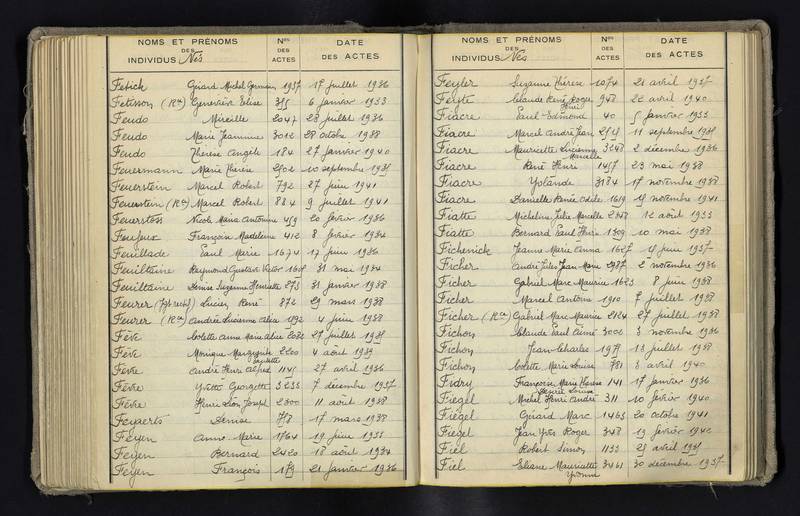 NOMS ET PRÉNOMS DES INDIVIDUS Nés Nos DES ACTES DATE DES ACTES
Fetick Gérard Michel Germain 1937 17 juillet 1936
Fetisson (Rn) Geneviève Elise 375 6 janvier 1933
Feudo Mireille 2047 28 juillet 1936
Feudo Marie Jeannine 3012 28 octobre 1938
Feudo Thérèse Angèle 184 27 janvier 1940
Feuermann Marie Thérèse 2502 10 septembre 1935
Feuerstein Marcel Robert 792 27 juin 1941
Feuerstein (Rn) Marcel Robert 884 9 juillet 1941
Feuerstoss Nicole Maria Antonine 459 20 février 1936
Feufeux François Madeleine 412 8 février 1934
Feuillade Paul Marie 1674 17 juin 1936
Feuiltaine Raymond Gustave Victor 31 mai 1934
Feuiltaine Denise Suzanne Henriette 273 31 janvier 1938
Feurer Lucien René 872 29 mars 1938
Feurer (Rn) Andrée Lucienne Alice 1592 4 juin 1938
Fève Colette Anne Marie Alice 2082 27 juillet 1935
Fève Monique Marguerite Paulette 2200 4 août 1939
Fèvre André Henri Alfred 1145 27 avril 1936
Fèvre Yvette Georgette 3233 7 décembre 1937
Fèvre Henri Léon Joseph 2300 11 août 1938
Feyaerts Denise 778 17 mars 1938
Feyen Anne Marie 1764 19 juin 1933
Feyen Bernard 2420 18 août 1934
Feyen François 179 21 janvier 1936
NOMS ET PRÉNOMS DES INDIVIDUS Nés Nos DES ACTES DATE DES ACTES
Feyler Suzanne Thérèse 1074 21 avril 1937
Feyte Claude René Roger 948 22 avril 1940
Fiacre Paul Edmond Henri 40 5 janvier 1933
Fiacre Marcel André Jean 11 septembre 1935
Fiacre Mauricette Lucienne Marcelle 3248 2 décembre 1936
Fiacre René Henri 1457 23 mai 1938
Fiacre Yolande 3184 17 novembre 1938
Fiacre Danielle Renée Odile 1619 4 novembre 1941
Fiatte Micheline Julie Marcelle 2348 12 août 1933
Fiatte Bernard Paul Henri 1309 10 mai 1938
Fichenick Jeanne Marie Anna 1627 4 juin 1937
Ficher André Jules Jean Marie 2987 2 novembre 1936
Ficher Gabriel Marc Maurice 1623 8 juin 1938
Ficher Marcel Antoine 1910 7 juillet 1938
Ficher (Rn) Gabriel Marc Maurice 2124 27 juillet 1938
Fichon Claude Paul Aimé 3002 3 novembre 1936
Fichon Jean Charles 1979 13 juillet 1938
Fichon Colette Marie Louise 781 3 avril 1940
Fidry Françoise Marie Thérèse 141 17 janvier 1936
Fiegel Michel Henri André 311 10 février 1940
Fiegel Gérard Marc 1463 20 octobre 1941
Fiegel Jean Yves Roger 348 19 février 1942
Fiel Robert Simon 1133 29 avril 1935
Fiel Eliane Mauricette Yvonne 3461 30 décembre 1937